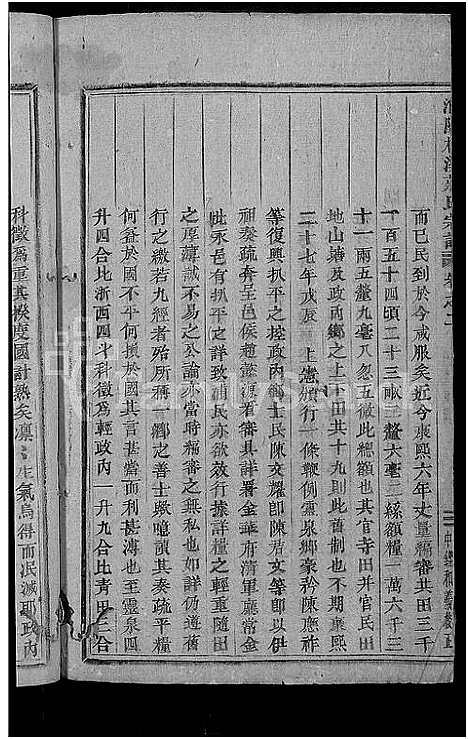 而已民到於今咸服矣近今康熙六年丈量編審共田三千
一百五十四頃二十三畝三釐六毫二絲額糧一萬六千三
十一兩五釐九毫八忽五微此總額也其官寺田并官民田
地山蕩及政內鄉之上下田共十九則此舊制也不期康熙
二十七年戊辰 上憲頒行一條鞭例靈泉鄉豪矜陳應祚
等復興扒平之控政內鄉士民陳文耀郎陳君文等即以伊
祖泰疏奏呈邑侯趙懿源看審具詳署金華府清軍廳常金
批永邑有扒平之詳致浦民亦欲效行據詳糧之輕重隨田
之厚薄誠不易之公論亦當時編審之奧私也如詳仍遵舊
行之繳若九經者殆所稱一鄉之善士歟噫讀其奏疏平糧
何益於國不平何損於國其言甚當而利甚溥也至靈泉四
升四合比浙西四斗科徵為輕政內一升九合比青田三合
科徵為重其揆度國計熟矣凜凜生氣烏得而泯滅耶政內